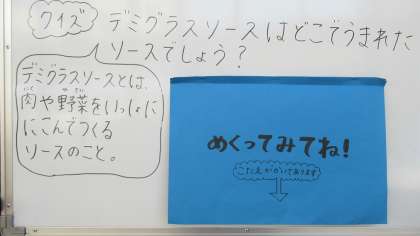 クイズ
デミグラスソースはどこでうまれた
ソースでしょう？
デミグラスソースとは、
肉や野菜をいっしょに
にこんでつくる
ソースのこと。
めくってみてね!
こたえがかいてあります